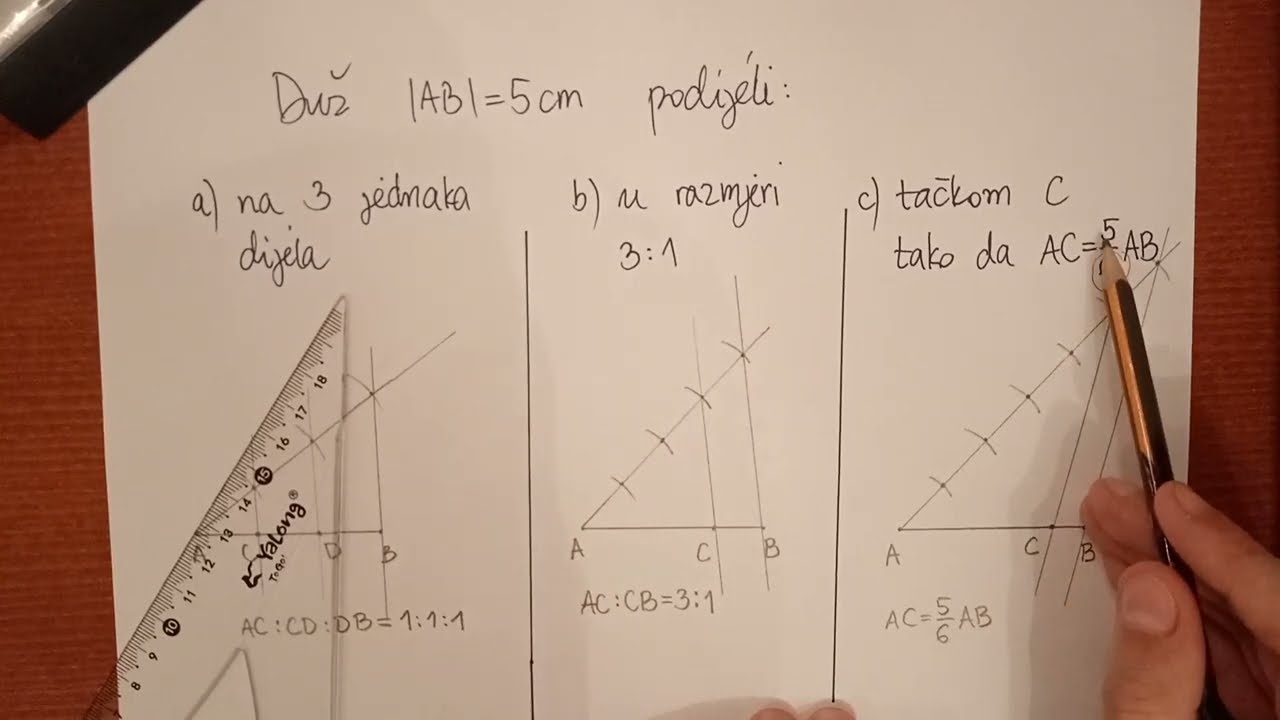 Duž |AB|=5cm podijeli:
a) na 3 jednaka
dijela
b) u razmjeri
3:1
c) tačkom C
tako da AC=5/ AB
18
17
16
15
14
13
12
11
10
9
8
Yalong®
TOGO!
C D B
AC:CD:DB=1:1:1
A C B
AC:CB=3:1
A C B
AC=5/6 AB